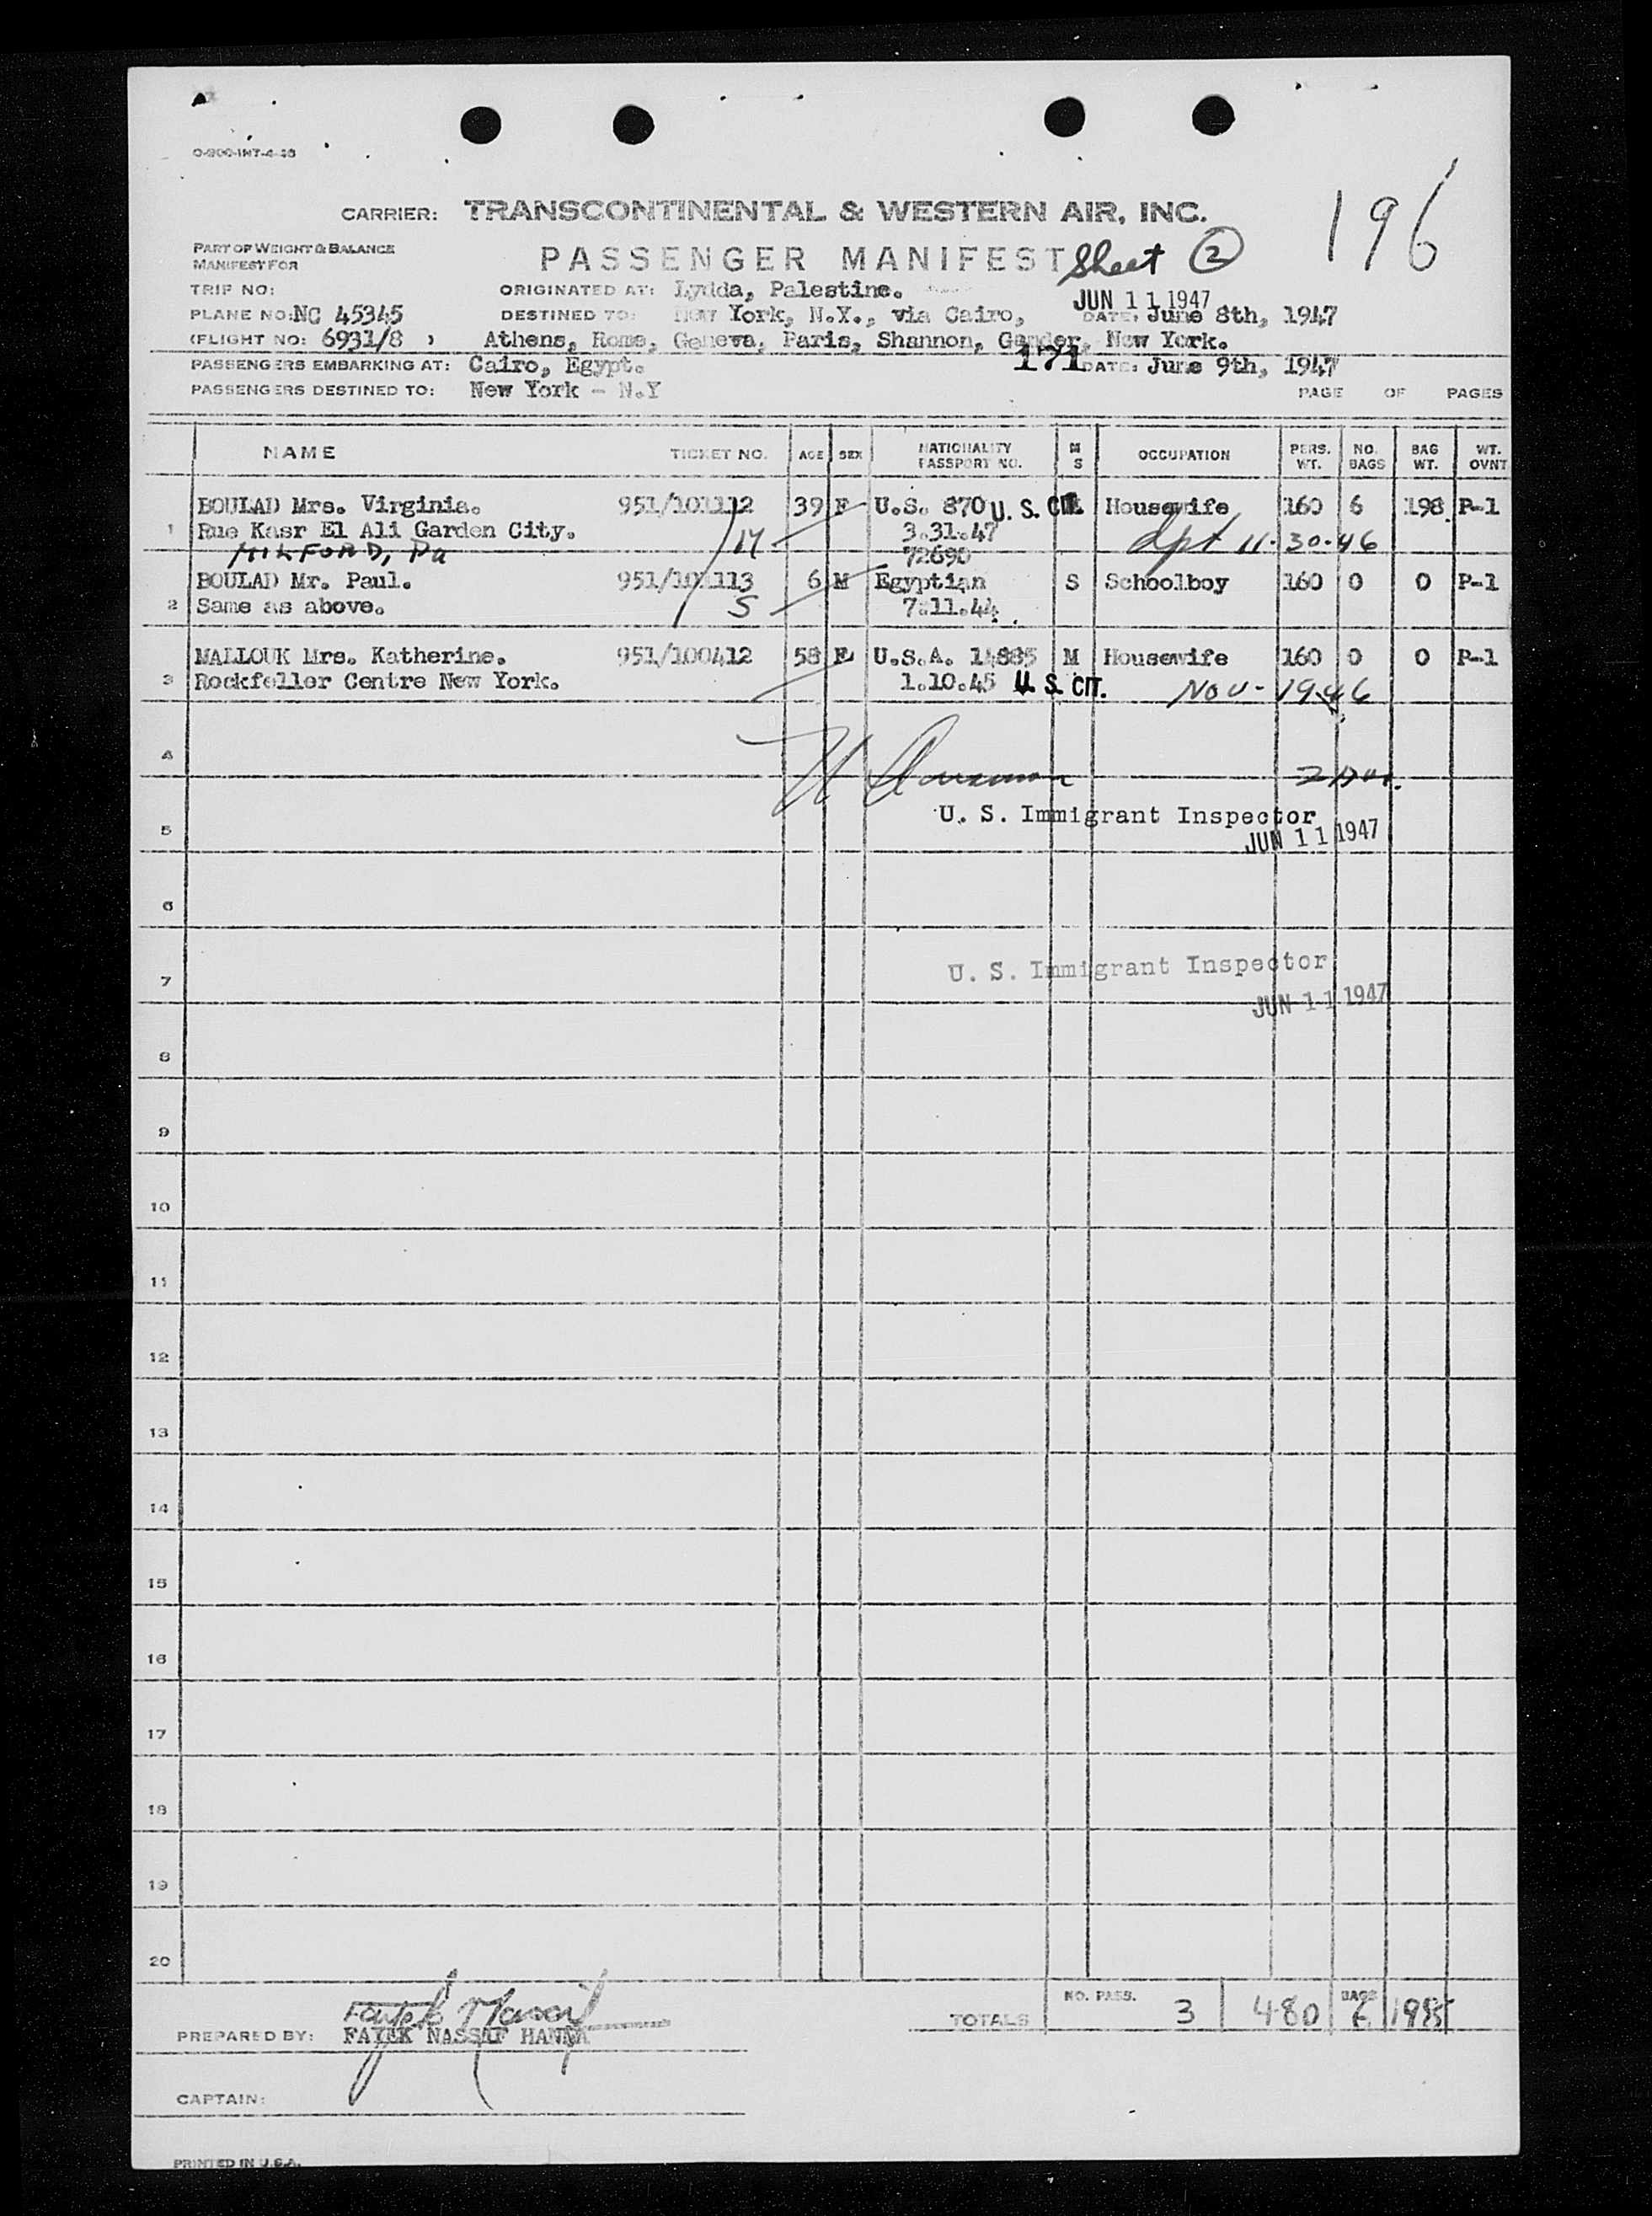 O-900-INT-4-46
196
CARRIER: TRANSCONTINENTAL & WESTERN AIR, INC.
PART OF WEIGHT & BALANCE
MANIFEST FOR
PASSENGER MANIFEST Sheet 2
TRIP NO: ORIGINATED AT: Lydda, Palestine. JUN 11 1947
PLANE NO: NC 45345 DESTINED TO: New York, N.Y., via Cairo, DATE: June 8th, 1947
(FLIGHT NO: 6931/8 ) Athens, Rome, Geneva, Paris, Shannon, Gander, New York.
PASSENGERS EMBARKING AT: Cairo, Egypt. 171 DATE: June 9th, 1947
PASSENGERS DESTINED TO: New York - N.Y PAGE OF PAGES
NAME TICKET NO. AGE SEX NATIONALITY PASSPORT NO. M S OCCUPATION PERS. WT. NO. BAGS BAG WT. WT. OVNT
BOULAD Mrs. Virginia. 951/101112 39 F U.S. 870 U. S. CIT. Housewife 160 6 198 P-1
1 Rue Kasr El Ali Garden City. 3.31.47
MILFORD, Pa 72690 dpt 11-30-46
BOULAD Mr. Paul. 951/101113 6 M Egyptian S Schoolboy 160 0 0 P-1
2 Same as above. 5 7.11.44.
MALLOUK Mrs. Katherine. 951/100412 58 F U.S.A. 14885 M Housewife 160 0 0 P-1
3 Rockfeller Centre New York. 1.10.45 U. S. CIT. Nov - 1946
4
U. S. Immigrant Inspector
5 JUN 11 1947
6
U. S. Immigrant Inspector
7
JUN 11 1947
8
9
10
11
12
13
14
15
16
17
18
19
20
TOTALS NO. PASS. 3 480 BAGS 6 198
PREPARED BY: FAYEK NASSAF HANNA
CAPTAIN:
PRINTED IN U.S.A.